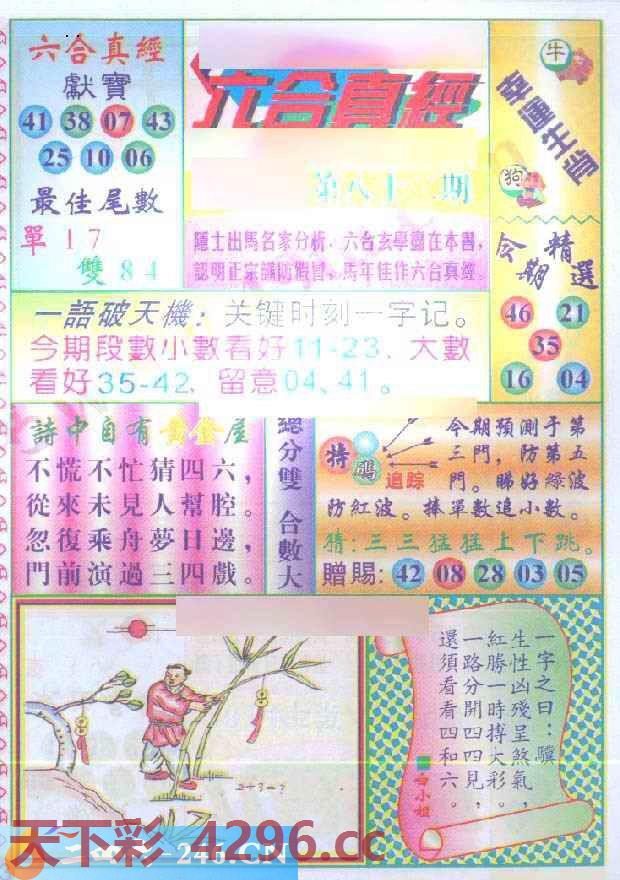 六合真經
獻寶
41 38 07 43
25 10 06
最佳尾數
單17
雙84
六合真經
第八十 期
隱士出馬名家分析,六合玄學盡在本書,
認明正宗謹防假冒,馬年佳作六合真經
牛
幸運生肖
狗
今期精選
46 21
35
16 04
一語破天機:关键时刻一字记。
今期段數小數看好11-23、大數
看好35-42、留意04、41。
詩中自有黃金屋
不慌不忙猜四六,
從來未見人幫腔。
忽復乘舟夢日邊,
門前演過三四戲。
總分雙 合數大
特碼
追踪
今期預測于第
三門,防第五
門。睇好绿波
防紅波。捧單數追小數。
猜:三三猛猛上下跳。
贈賜:42 08 28 03 05
2+3=?
一字之曰:驥
生性凶殘呈煞氣,
紅勝一時搏大彩。
一路分開四四見,
還須看看四和六。
白小姐
天下彩 4296.cc
246.CN